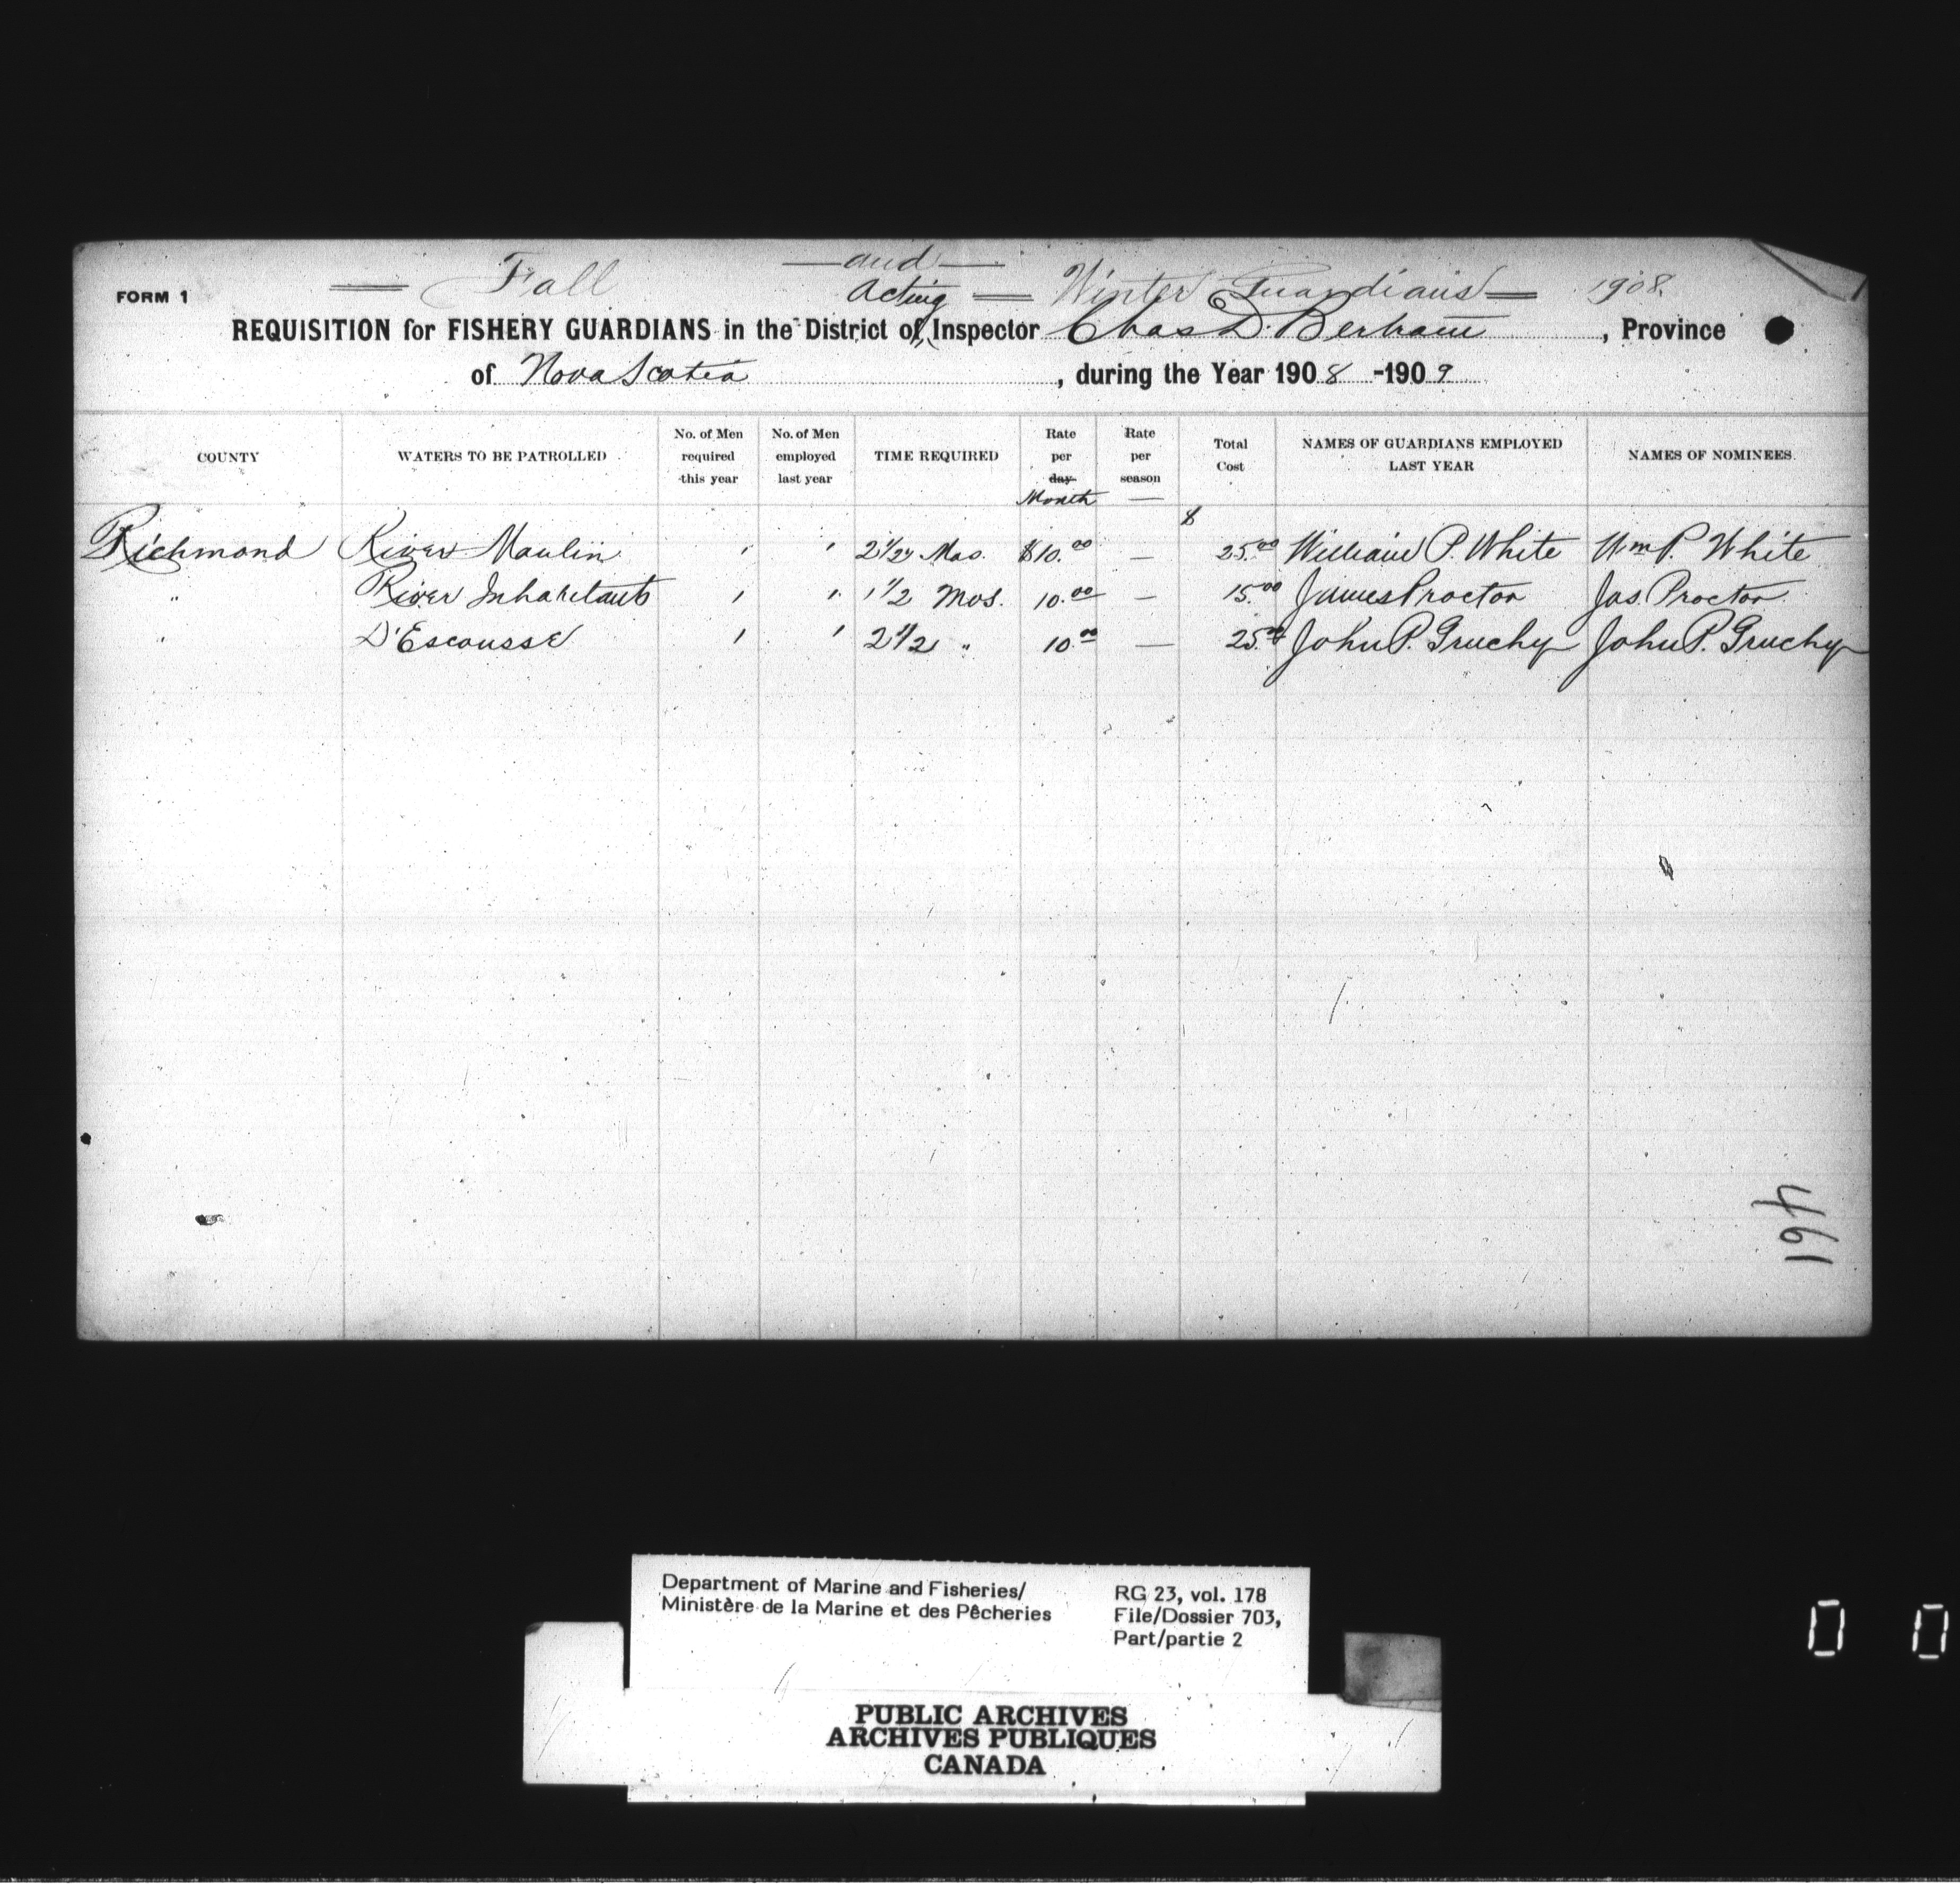 — and —
= Fall = Winter Guardians = 1908.
FORM 1
acting
REQUISITION for FISHERY GUARDIANS in the District of Inspector Chas D. Bertram, Province
of Nova Scotia, during the Year 1908-1909
COUNTY WATERS TO BE PATROLLED No. of Men required this year No. of Men employed last year TIME REQUIRED Rate per day Month Rate per season — Total Cost NAMES OF GUARDIANS EMPLOYED LAST YEAR NAMES OF NOMINEES.
$
Richmond River Maulin 1 1 2 1/2 Mos. $10.00 — 25.00 William P. White Wm P. White
" River Inhabitants 1 1 1 1/2 Mos. 10.00 — 15.00 James Proctor Jas. Proctor
" D'Escousse 1 1 2 1/2 " 10.00 — 25.00 John P. Gruchy John P. Gruchy
461
Department of Marine and Fisheries/
Ministère de la Marine et des Pêcheries
RG 23, vol. 178
File/Dossier 703,
Part/partie 2
PUBLIC ARCHIVES
ARCHIVES PUBLIQUES
CANADA
0 0